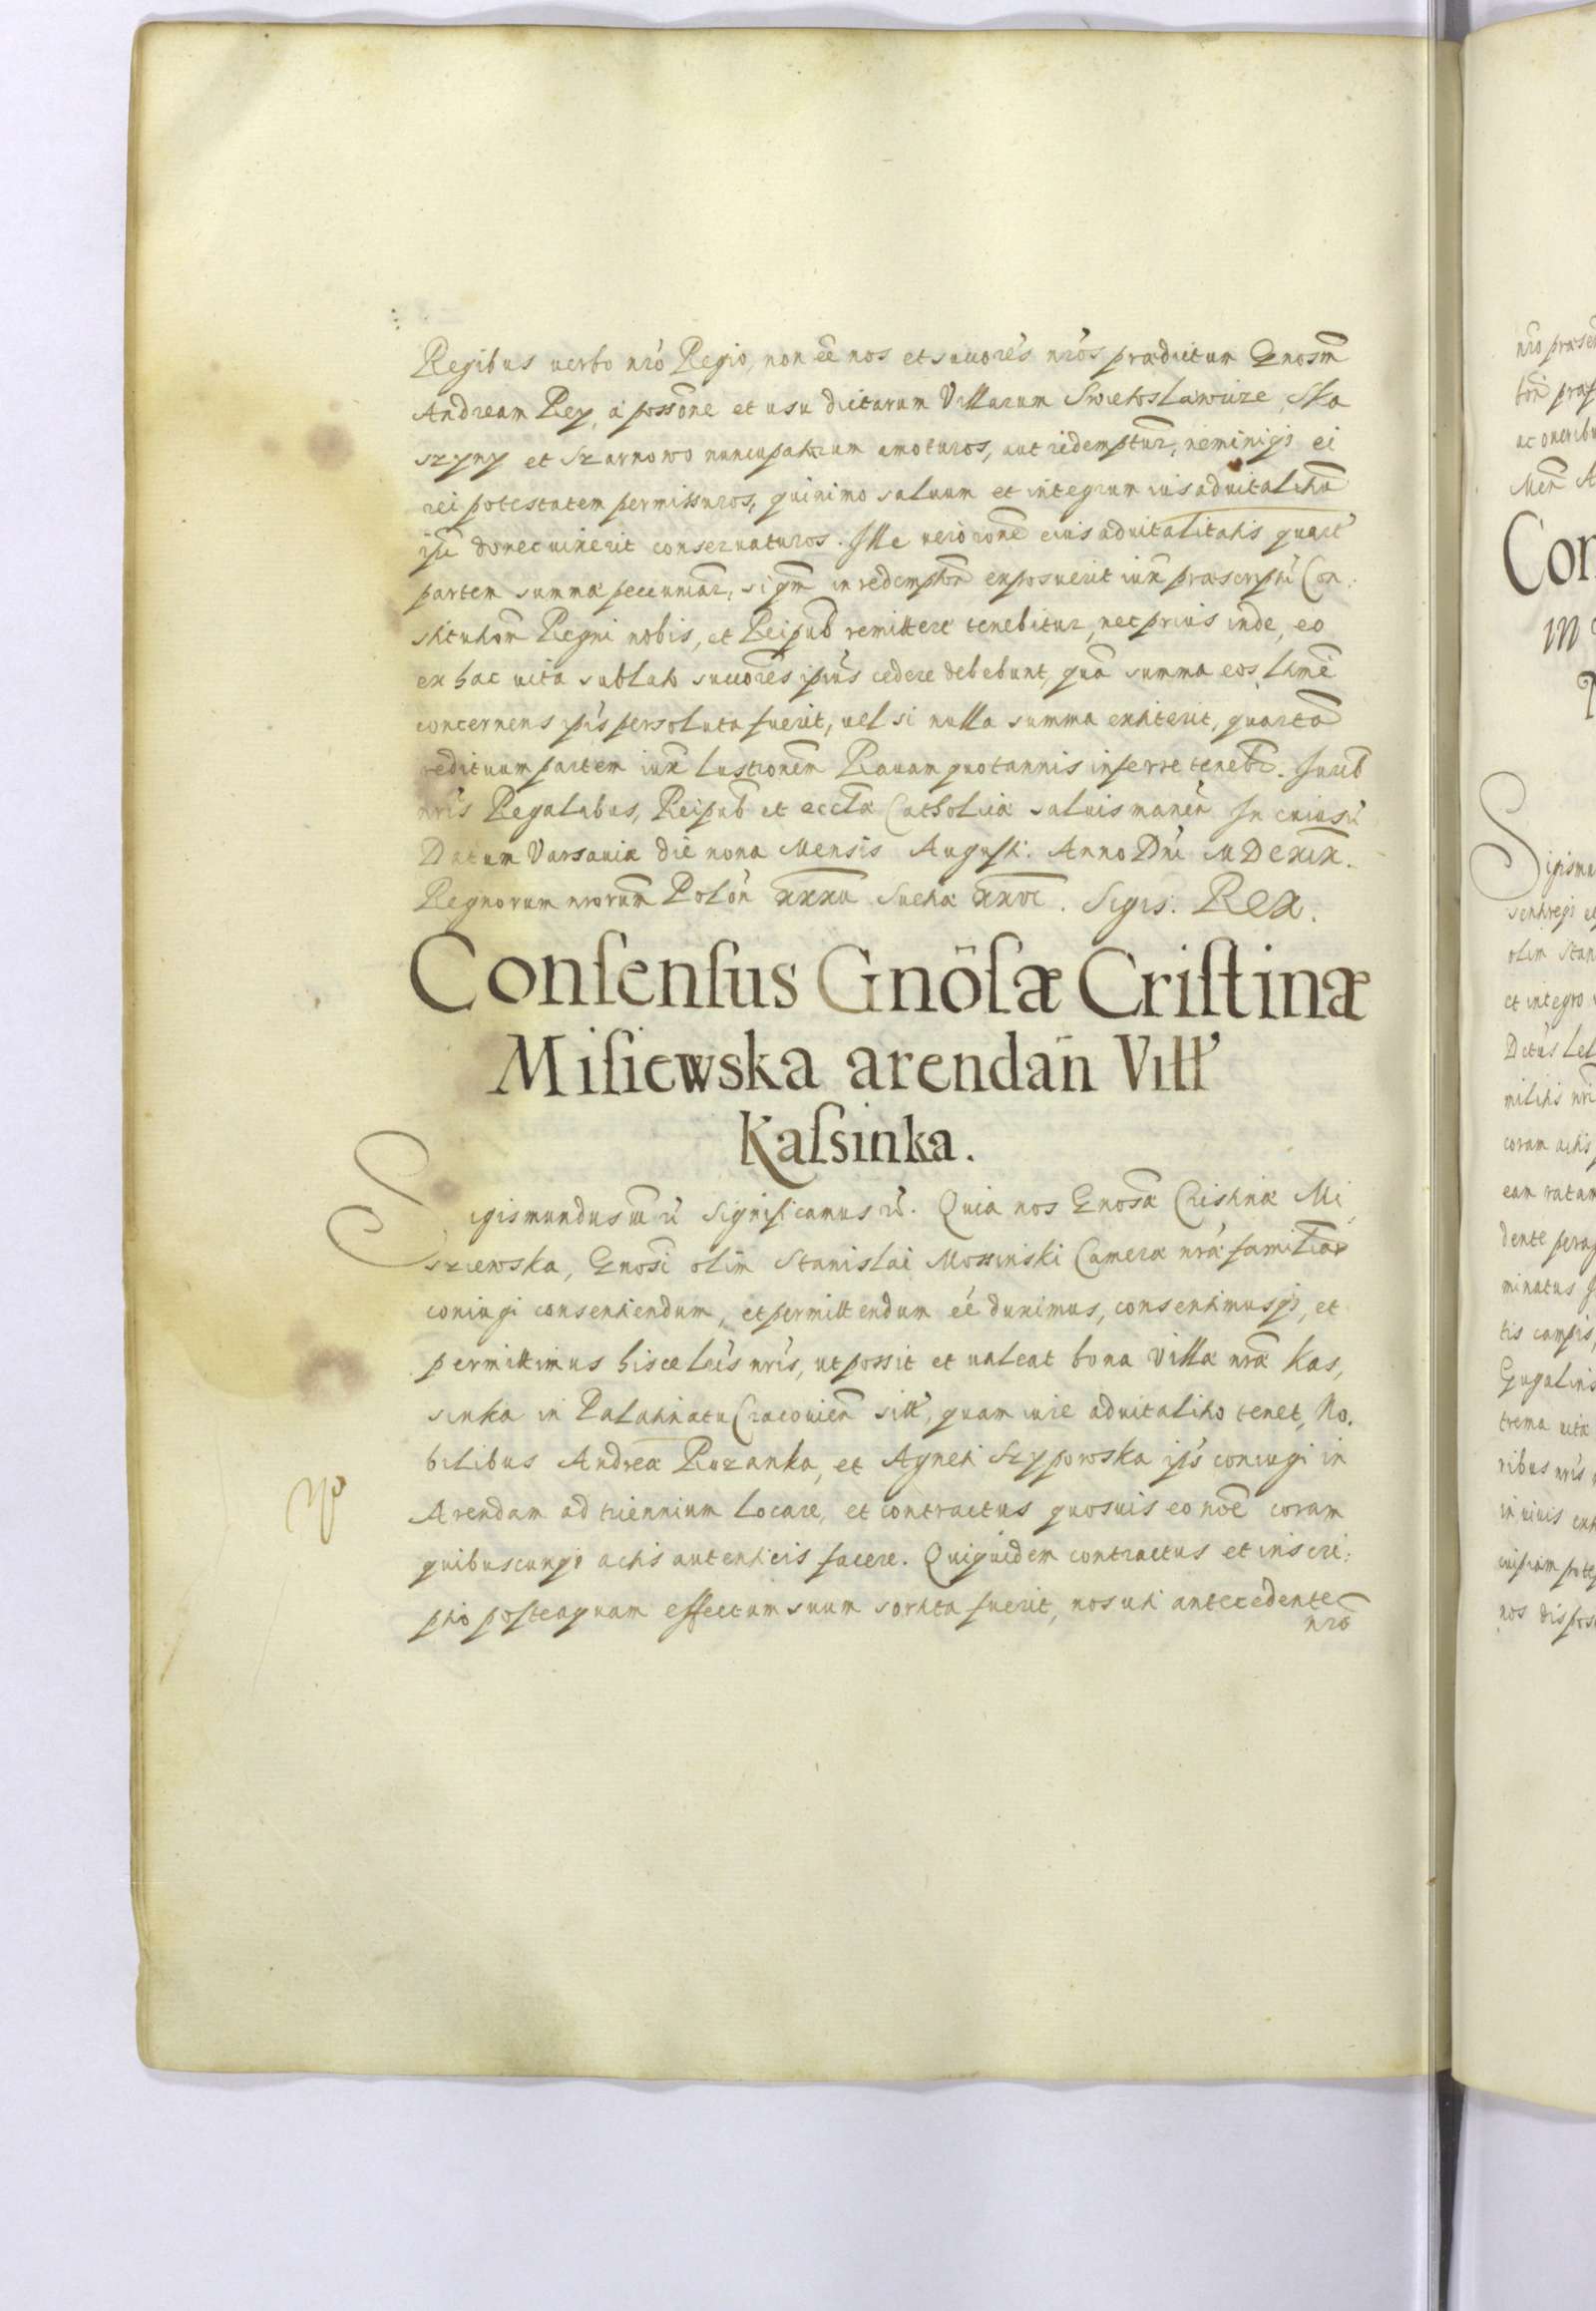 Regibus verbo nr̃o Regio, non eẽ nos et succorẽs nr̃os prædictum Gnosm̃
Andream Rey, à possõne et usu dictarum Villarum Swietoslawice, Ska
szyny et Szarnowo nuncupatarum amoturos, aut redempturos, neminiq3 ei
rei potestatem permissuros, quinimo saluum et integrum ius aduitalitiũ
ipsi donec uixerit conseruaturos. Ille uero rõne eius aduitalitatis quart
partem summæ pecuniar, si qm̃ in redemptõn exposuerit iux̃ præscriptũ Con:
stitution̄ Regni nobis, et Reipub̃ remittere tenebitur, nec prius inde, eo
ex hac uita sublato succorẽs ipiũs cedere debebunt, quã summa eos ltimẽ
concernens ip̃is persoluta fuerit, uel si nulla summa extiterit, quartã
redituum partem iux̃ Lustronẽm Rauam quotannis inferre tenebr̃. Jurib̃
nr̃is Regalibus, Reipub̃ et ecclæ̃ Catholicæ saluis manen̄ In cuius rĩ
Datum Varsauiæ die nona Mensis Augusti. Anno Dn̄i MDCXIX.
Regnorum nrorum̃ Polon̄ XXXII Sueciæ XXVI. Sigis. Rex.
Consensus Gnõsæ Cristinæ
Misiewska arendan̄ Vill'
Kassinka.
Sigismundus III r̃ Significamus r̃. Quia nos Gnosæ̃ Christinæ Mi
sziewska, Gnosĩ olim Stanislai Mossinski Cameræ nr̃æ familiar̃
coniugi consentiendum, et permittendum eẽ duximus, consentimusq3, et
permittimus hisce lrĩs nr̃is, ut possit et ualeat bona Villæ nr̃æ Kas,
sinka in Palatinatu Cracouien̄ sitt', quam iure aduitalitio tenet, No.
bilibus Andreæ Ruzanka, et Agneti Szypowska ip̃s coniugi in
Arendam ad triennium Locare, et contractus quosuis eo noẽ coram
quibuscunq3 actis autenticis facere. Quiquidem contractus et inscri:
ptio posteaquam effectum suum sortita fuerit, nos uti antecedente
nr̃o